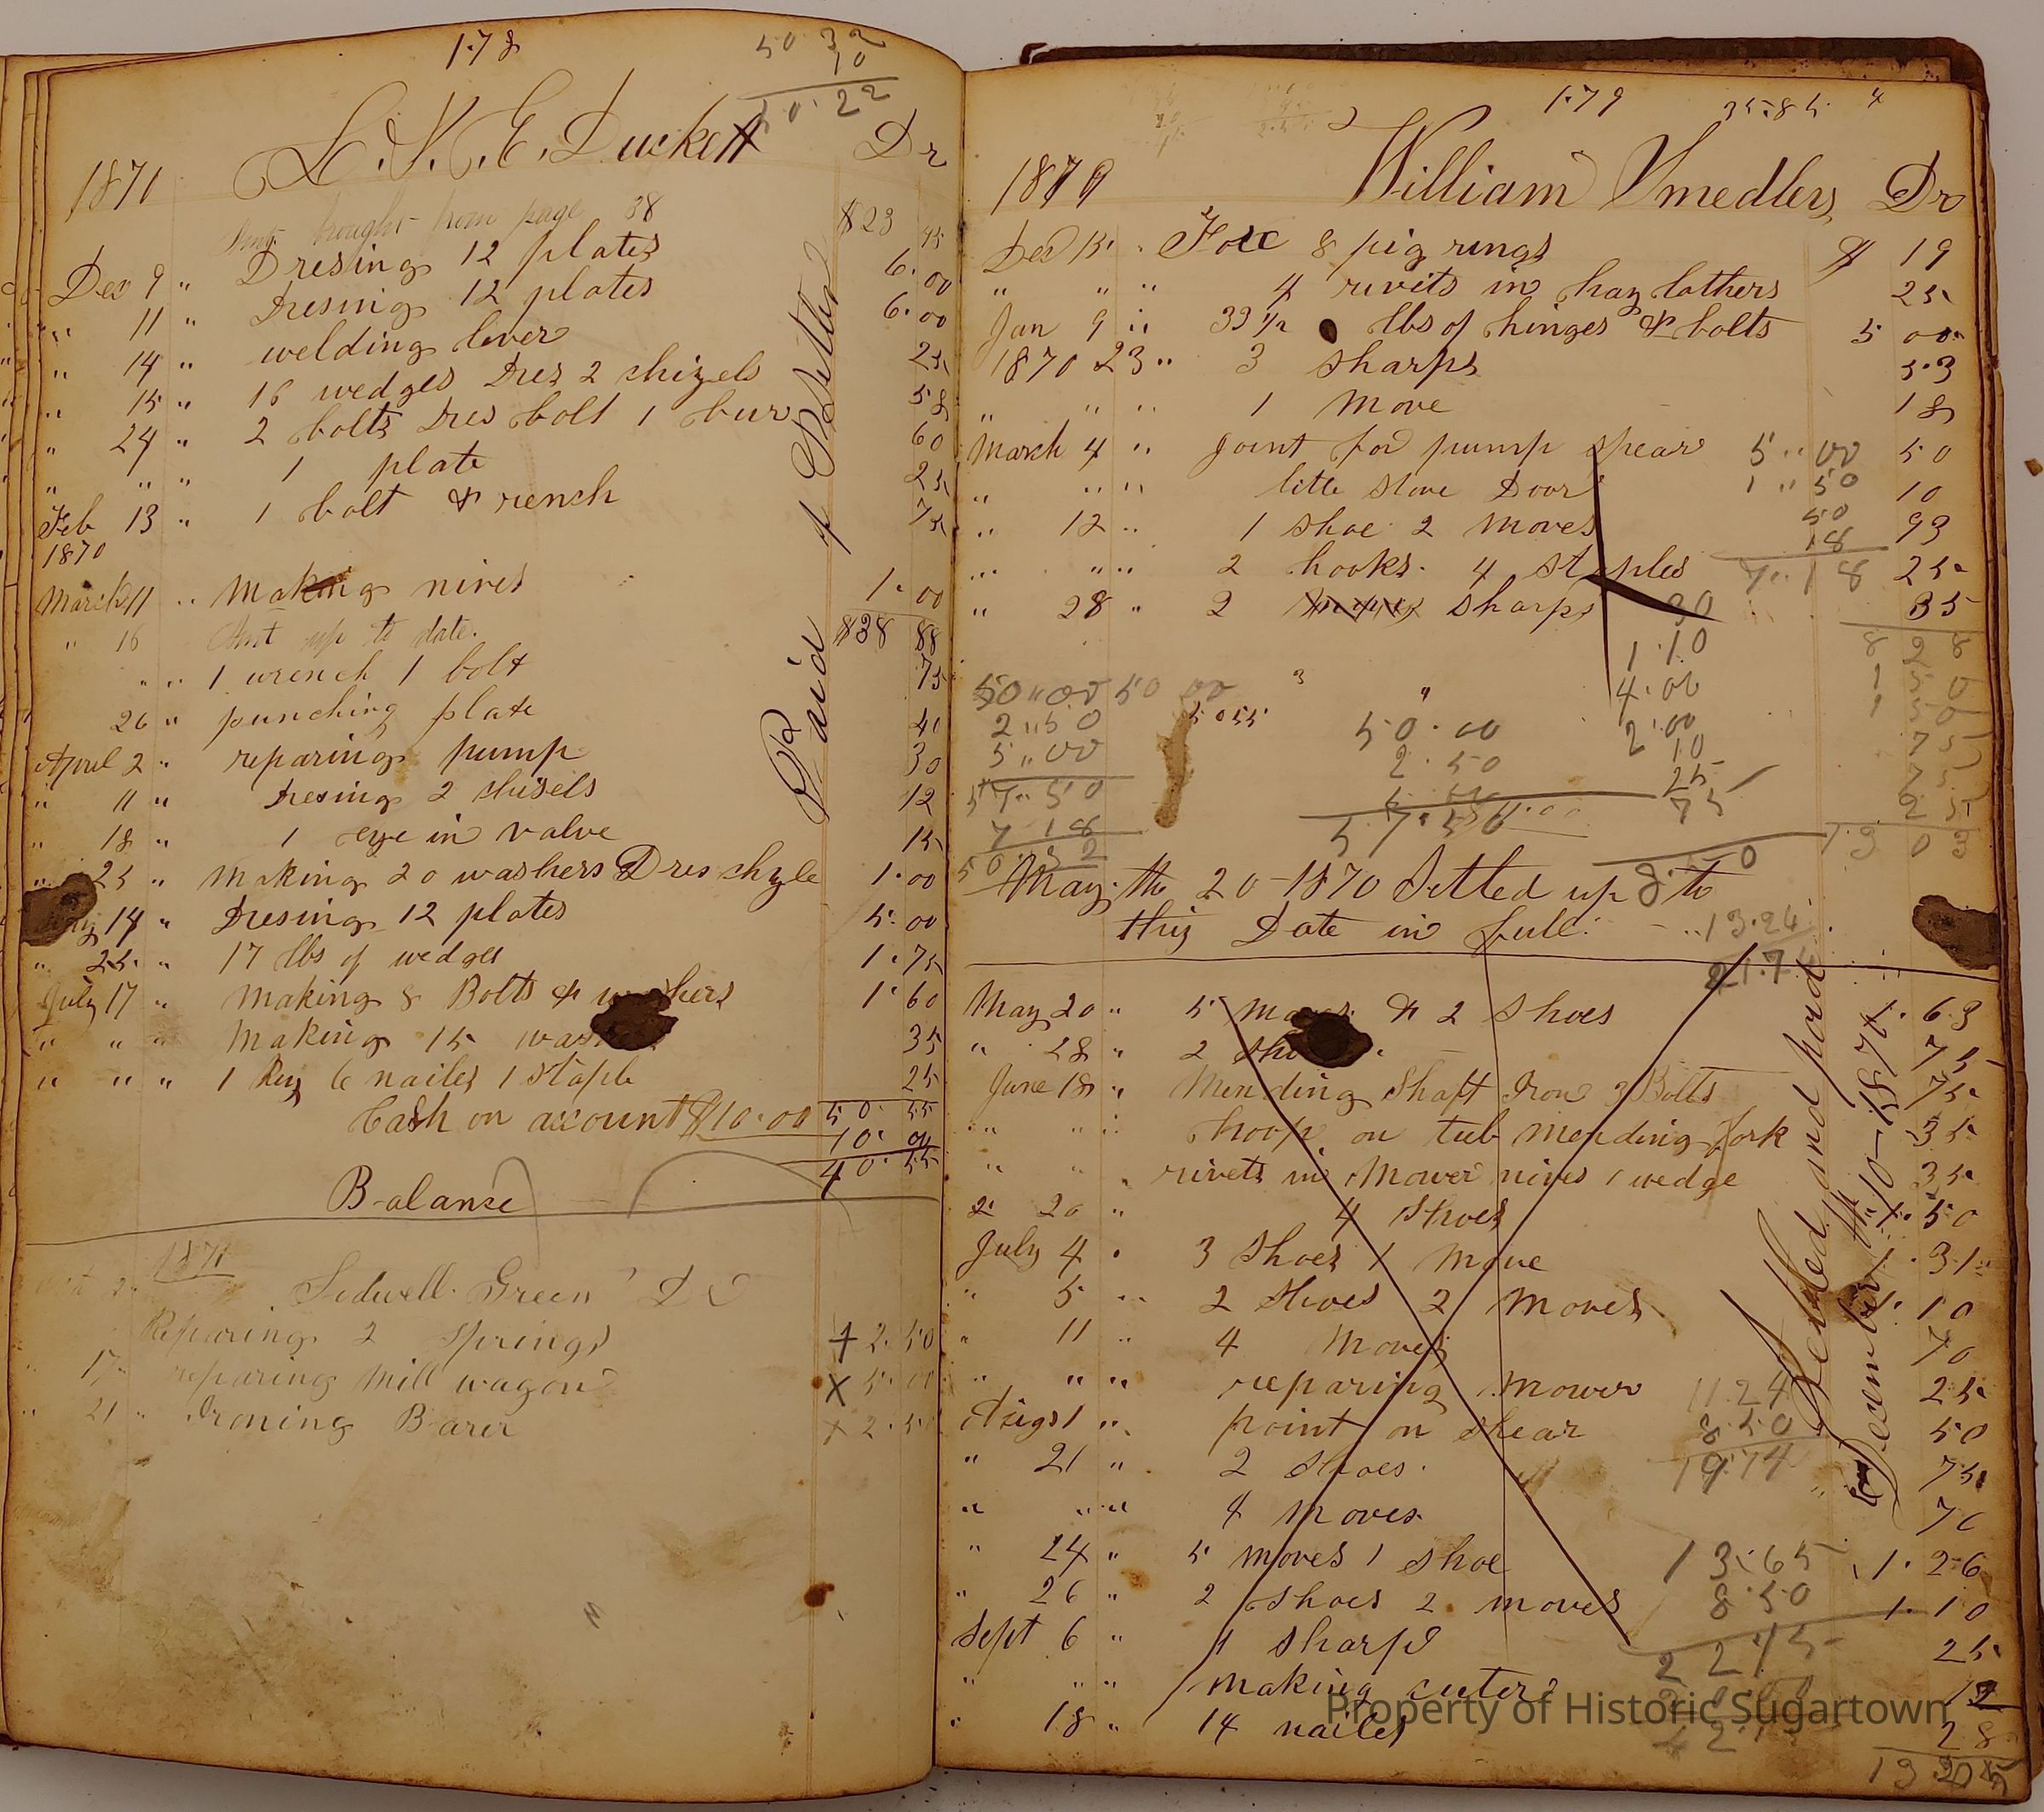 178
50 32
10
40.22
L. N. E. Duckett Dr
1871
Amt brought from page 38 $23 45
Dec 9 " Dresing 12 plates 6.00
" 11 " Dresing 12 plates 6.00
" 14 " welding lever 25
" 15 " 16 wedges Dres 2 chizels 58
" 24 " 2 bolts Dres bolt 1 bur 60
" " " 1 plate 25
Feb 13 " 1 bolt & rench 75
1870
March 11 " Making nives 1.00
" 16 Amt up to date. $38 88
" " 1 wrench 1 bolt 75
26 " punching plate 40
Apriel 2 " reparing pump 30
" 11 " Dresing 2 chisels 12
" 18 " 1 eye in valve 15
" 25 " Making 20 washers Dres chyle 1.00
14 " Dresing 12 plates 5.00
" 25 " 17 lbs of wedges 1.75
July 17 " Making 8 Bolts & washers 1.60
" " " Making 15 35
" " " 1 Key 6 nailes 1 staple 25
50.55
Cash on account $10.00 10.00
40.55
Balanse
Paid of Settled
1871
Sidwell Green Dr
Reparing 2 springs + 2.50
17 reparing mill wagon x 5.00
" 21 " Ironing Barer + 2.50
179 35.85 4
William Smedley Dr
1870
Dec 15 " Fore 8 pig rings $ 19
" " " 4 rivits in hay lathers 25
Jan 9 " 33 1/2 lbs of hinges & bolts 5 00
1870 23 " 3 sharps 53
" " " 1 move 18
March 4 " Joint for pump spear 50
" " " litle stove Door 10
" 12 " 1 shoe 2 moves 93
" " " 2 hooks. 4 staples 25
" 28 " 2 sharps 35
5..00
1..50
50
18
7..18
30
1.10
4.00
2.00
10
25
75
8.50
8 28
1 50
1 50
75
75
25
13 03
50..00 50 00
2..50
5..00
57..50
7 18
50 32
5055
50.00
2.50
57.50
May, the 20-1870 Settled up to
this Date in full.
13.24
21.74
May 20 " 5 moves & 2 shoes 1.63
" 28 " 2 75
June 18 " Mending Shaft Iron 3 Bolts 75
" " " hoop on tub mending fork 35
" " " rivets in Mower nives 1 wedge 35
" 20 " 4 Shoes 1.50
July 4 " 3 Shoes 1 Move 1.31
" 5 " 2 Shoes 2 Moves 1.10
" 11 " 4 Moves 70
" " " reparing Mower 25
Augs 1 " point on shear 50
" 21 " 2 Shoes. 75
" " " 4 Moves 70
" 24 " 5 moves 1 shoe 1.26
" 26 " 2 Shoes 2 moves 1.10
Sept 6 " 1 sharp 25
" " " making cuter 12
" 18 " 14 nailes 28
11 24
8 50
19 74
13.65
8.50
22 15
Settled and paid
December the 10-1870
Property of Historic Sugartown